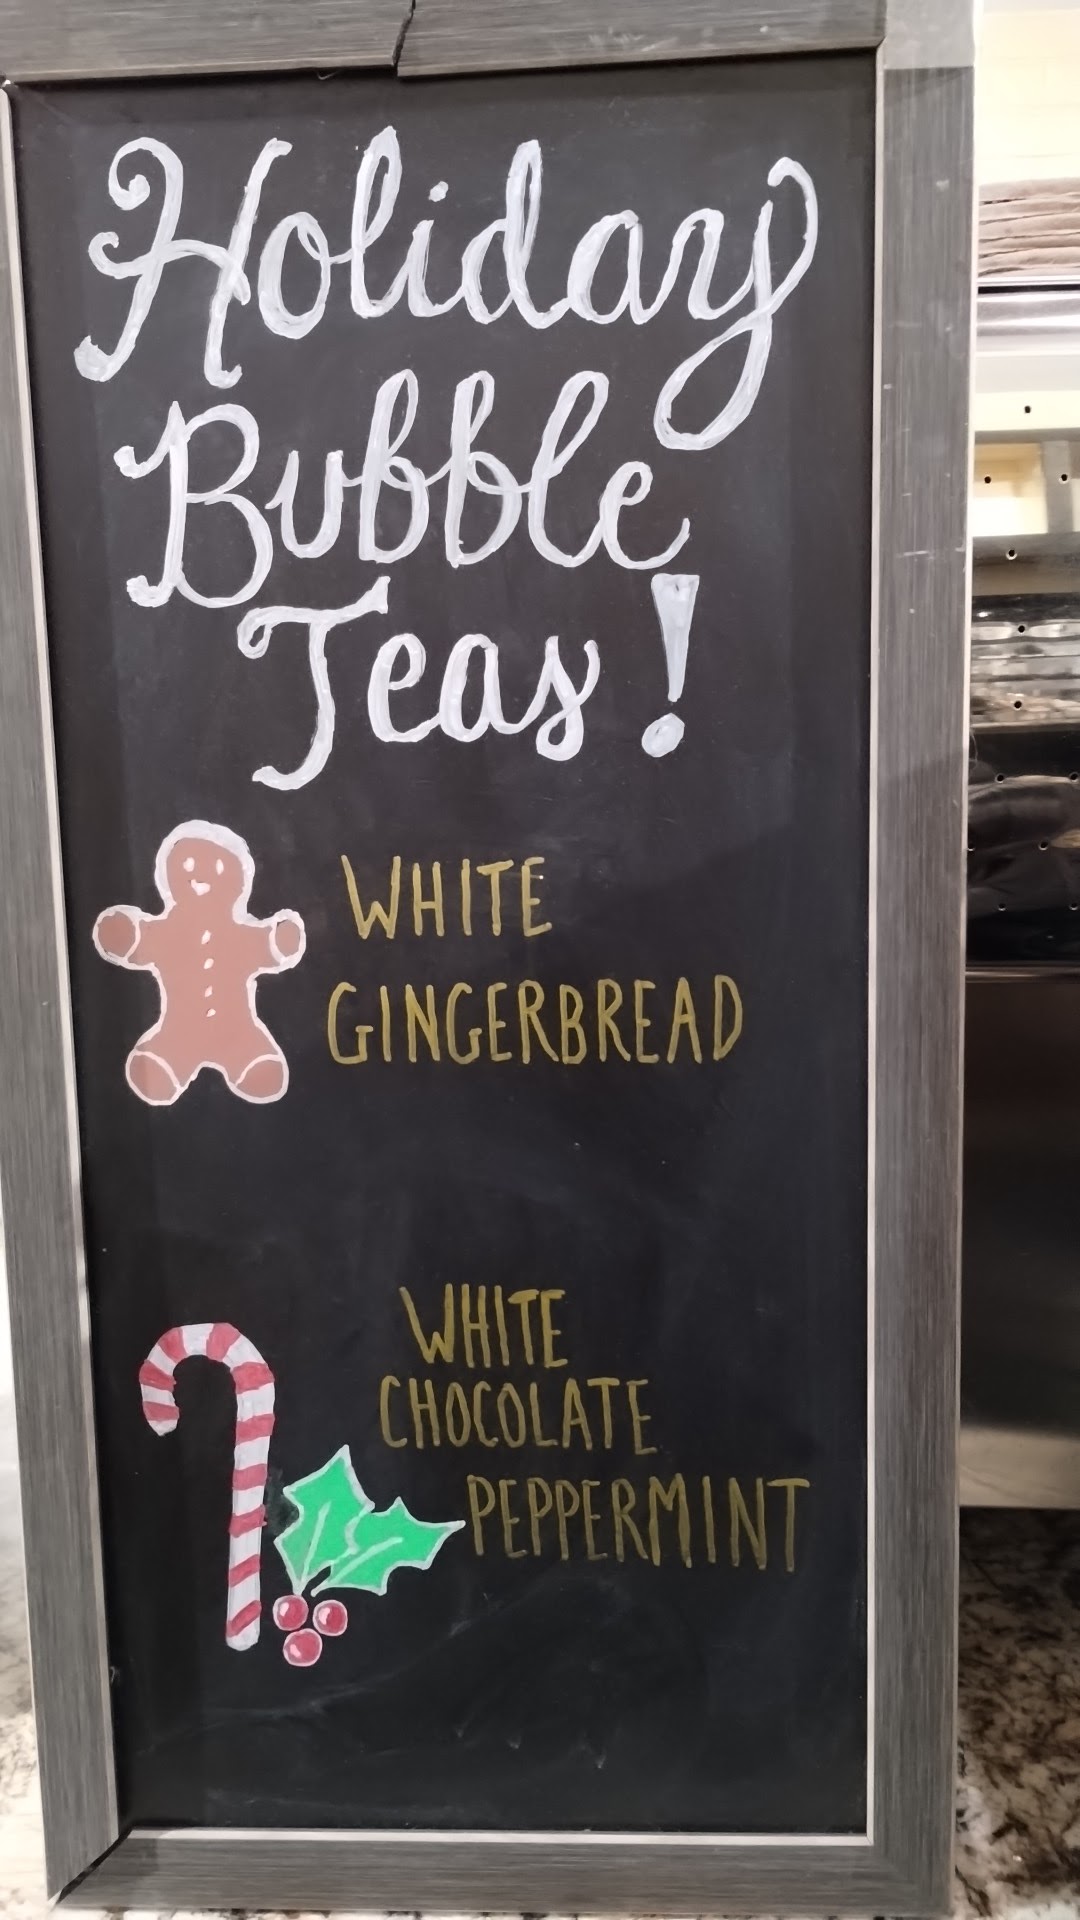 Holiday
Bubble
Teas!
WHITE
GINGERBREAD
WHITE
CHOCOLATE
PEPPERMINT